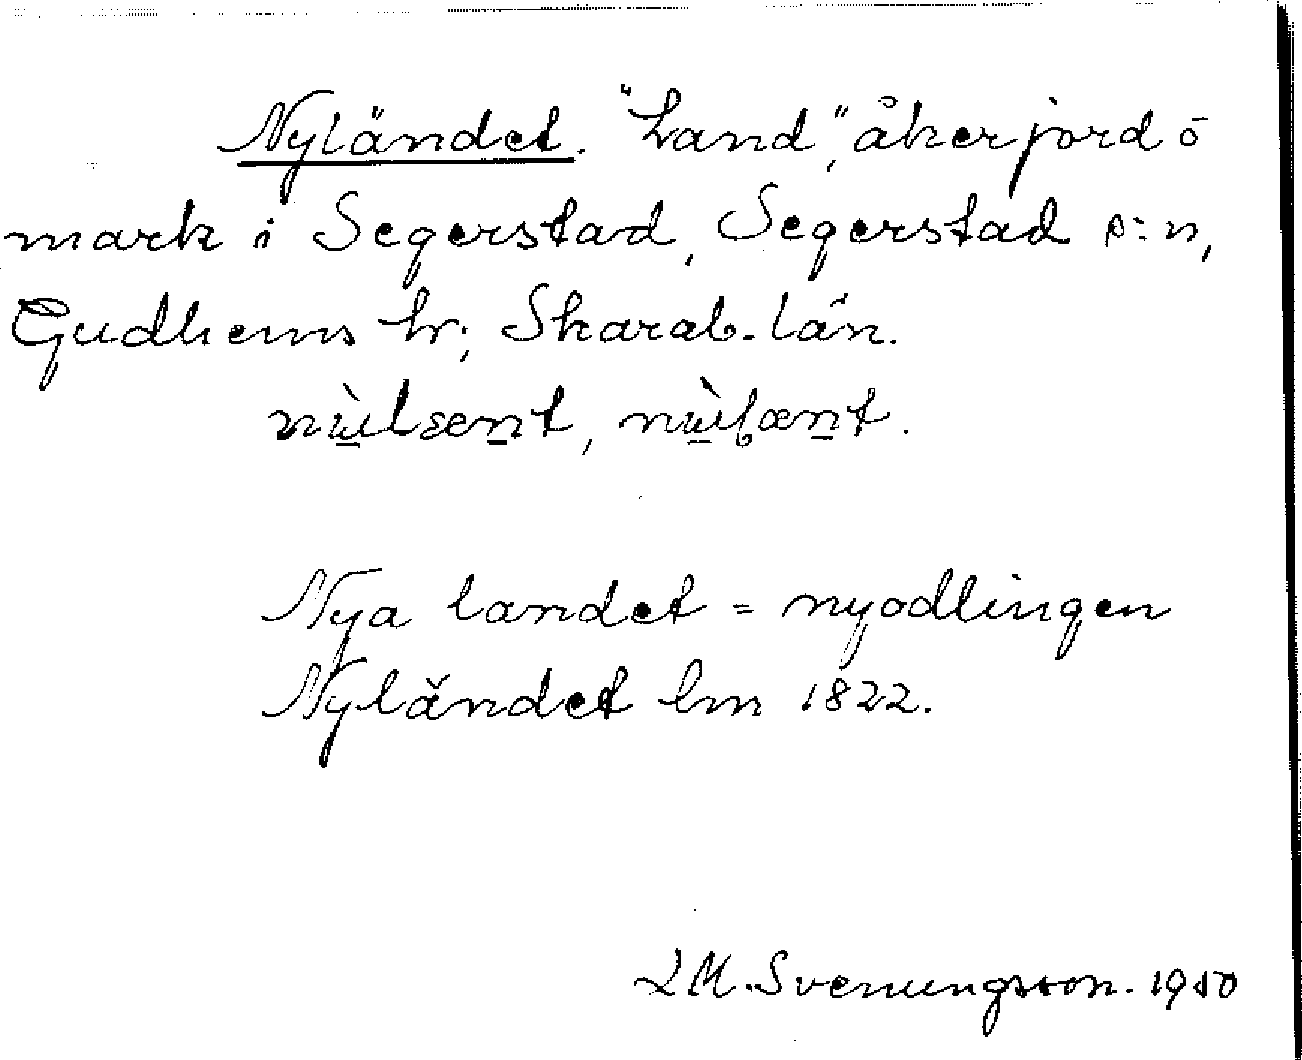 Nyländet. "Land", åkerjord o
mark i Segerstad, Segerstad s:n,
Gudhems hr; Skarab. län.
Nya landet = nyodlingen
Nyländet lm 1822.
L M. Svenungsson. 1910